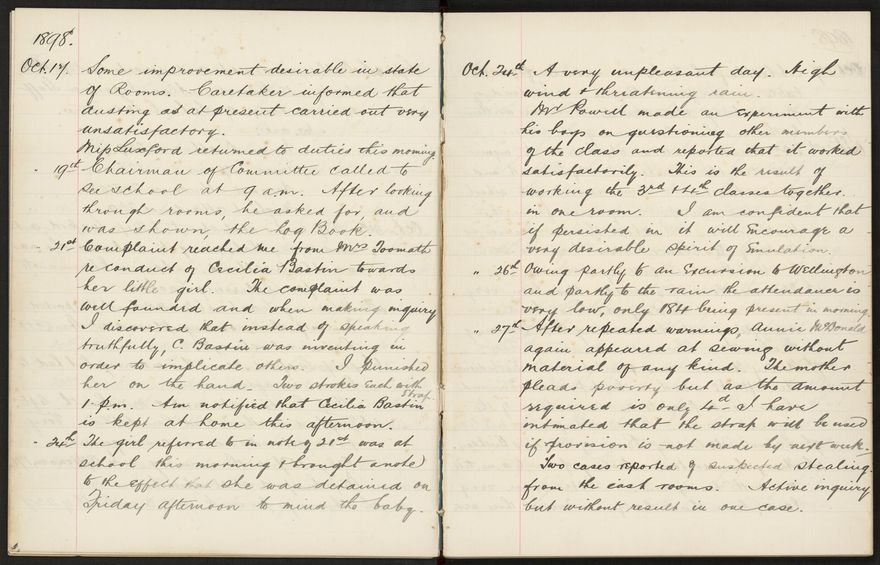 1898.
Oct. 17. Some improvement desirable in state
of Rooms. Caretaker informed that
dusting as at present carried out very
unsatisfactory.
Miss Luxford returned to duties this morning
" 19th Chairman of Committee called to
see school at 9 a.m. After looking
through rooms, he asked for, and
was shown, the Log Book.
" 21st Complaint reached me from Mrs Toomath
re conduct of Cecilia Bastin towards
her little girl. The complaint was
well founded and when making inquiry
I discovered that instead of speaking
truthfully, C. Bastin was inventing in
order to implicate others. I punished
her on the hand. Two strokes each with
strap.
1 p.m. Am notified that Cecilia Bastin
is kept at home this afternoon.
" 24th The girl referred to in note of 21st was at
school this morning & brought a note
to the effect that she was detained on
Friday afternoon to mind the baby.
Oct. 24th A very unpleasant day. High
wind & threatening rain.
Mr Powell made an experiment with
his boys on questioning other members
of the class and reported that it worked
satisfactorily. This is the result of
working the 3rd & 4th classes together
in one room. I am confident that
if persisted in it will encourage a
very desirable spirit of Emulation.
" 26th Owing partly to an Excursion to Wellington
and partly to the rain the attendance is
very low, only 184 being present in morning.
" 27th After repeated warnings, Annie McDonald
again appeared at sewing without
material of any kind. The mother
pleads poverty but as the amount
required is only 4d I have
intimated that the strap will be used
if provision is not made by next week.
Two cases reported of suspected stealing
from the east rooms. Active inquiry
but without result in one case.